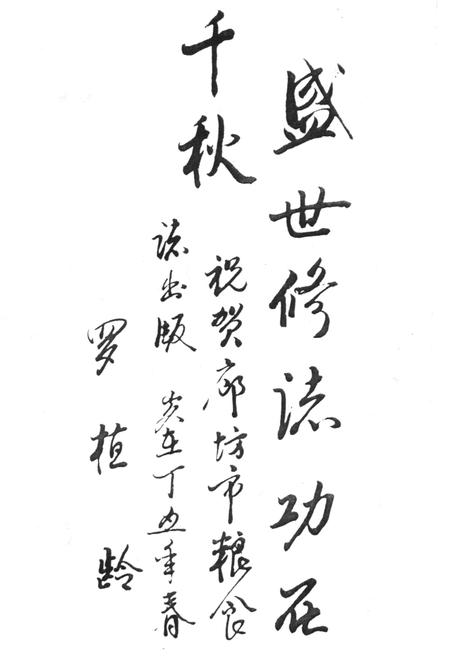 盛世修志功在
千秋
祝贺廊坊市粮食
志出版 岁在丁丑年春
罗植龄